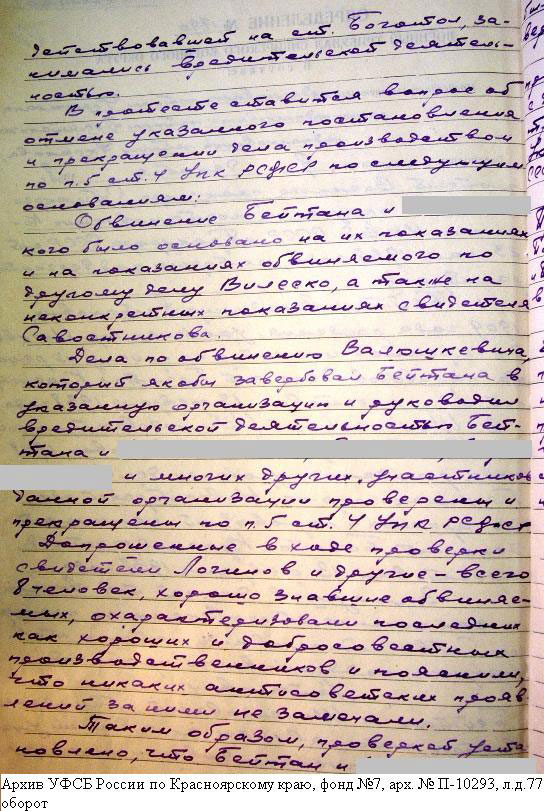 действовавшей на ст. Боготол, за-
нимались вредительской деятель-
ностью.
В протесте ставится вопрос об
отмене указанного постановления
и прекращении дела производством
по п.5 ст.4 УПК РСФСР по следующим
основаниям:
Обвинение Бейтана и
кого было основано на их показаниях
и на показаниях обвиняемого по
другому делу Вилеско, а также на
неконкретных показаниях свидетеля
Савостникова.
Дела по обвинению Валюшкевича,
который якобы завербовал Бейтана в
указанную организацию и руководил
вредительской деятельностью Бей-
тана и
и многих других участников
данной организации проверены и
прекращены по п.5 ст. 4 УПК РСФСР
Допрошенные в ходе проверки
свидетели Логинов и другие – всего
8 человек, хорошо знавшие обвиняе-
мых, охарактеризовали последних
как хороших и добросовестных
производственников и пояснили,
что никаких антисоветских прояв-
лений за ними не замечали.
Таким образом, проверкой уста
новлено, что Бейтан и
Архив УФСБ России по Красноярскому краю, фонд №7, арх. № П-10293, л.д.77
оборот